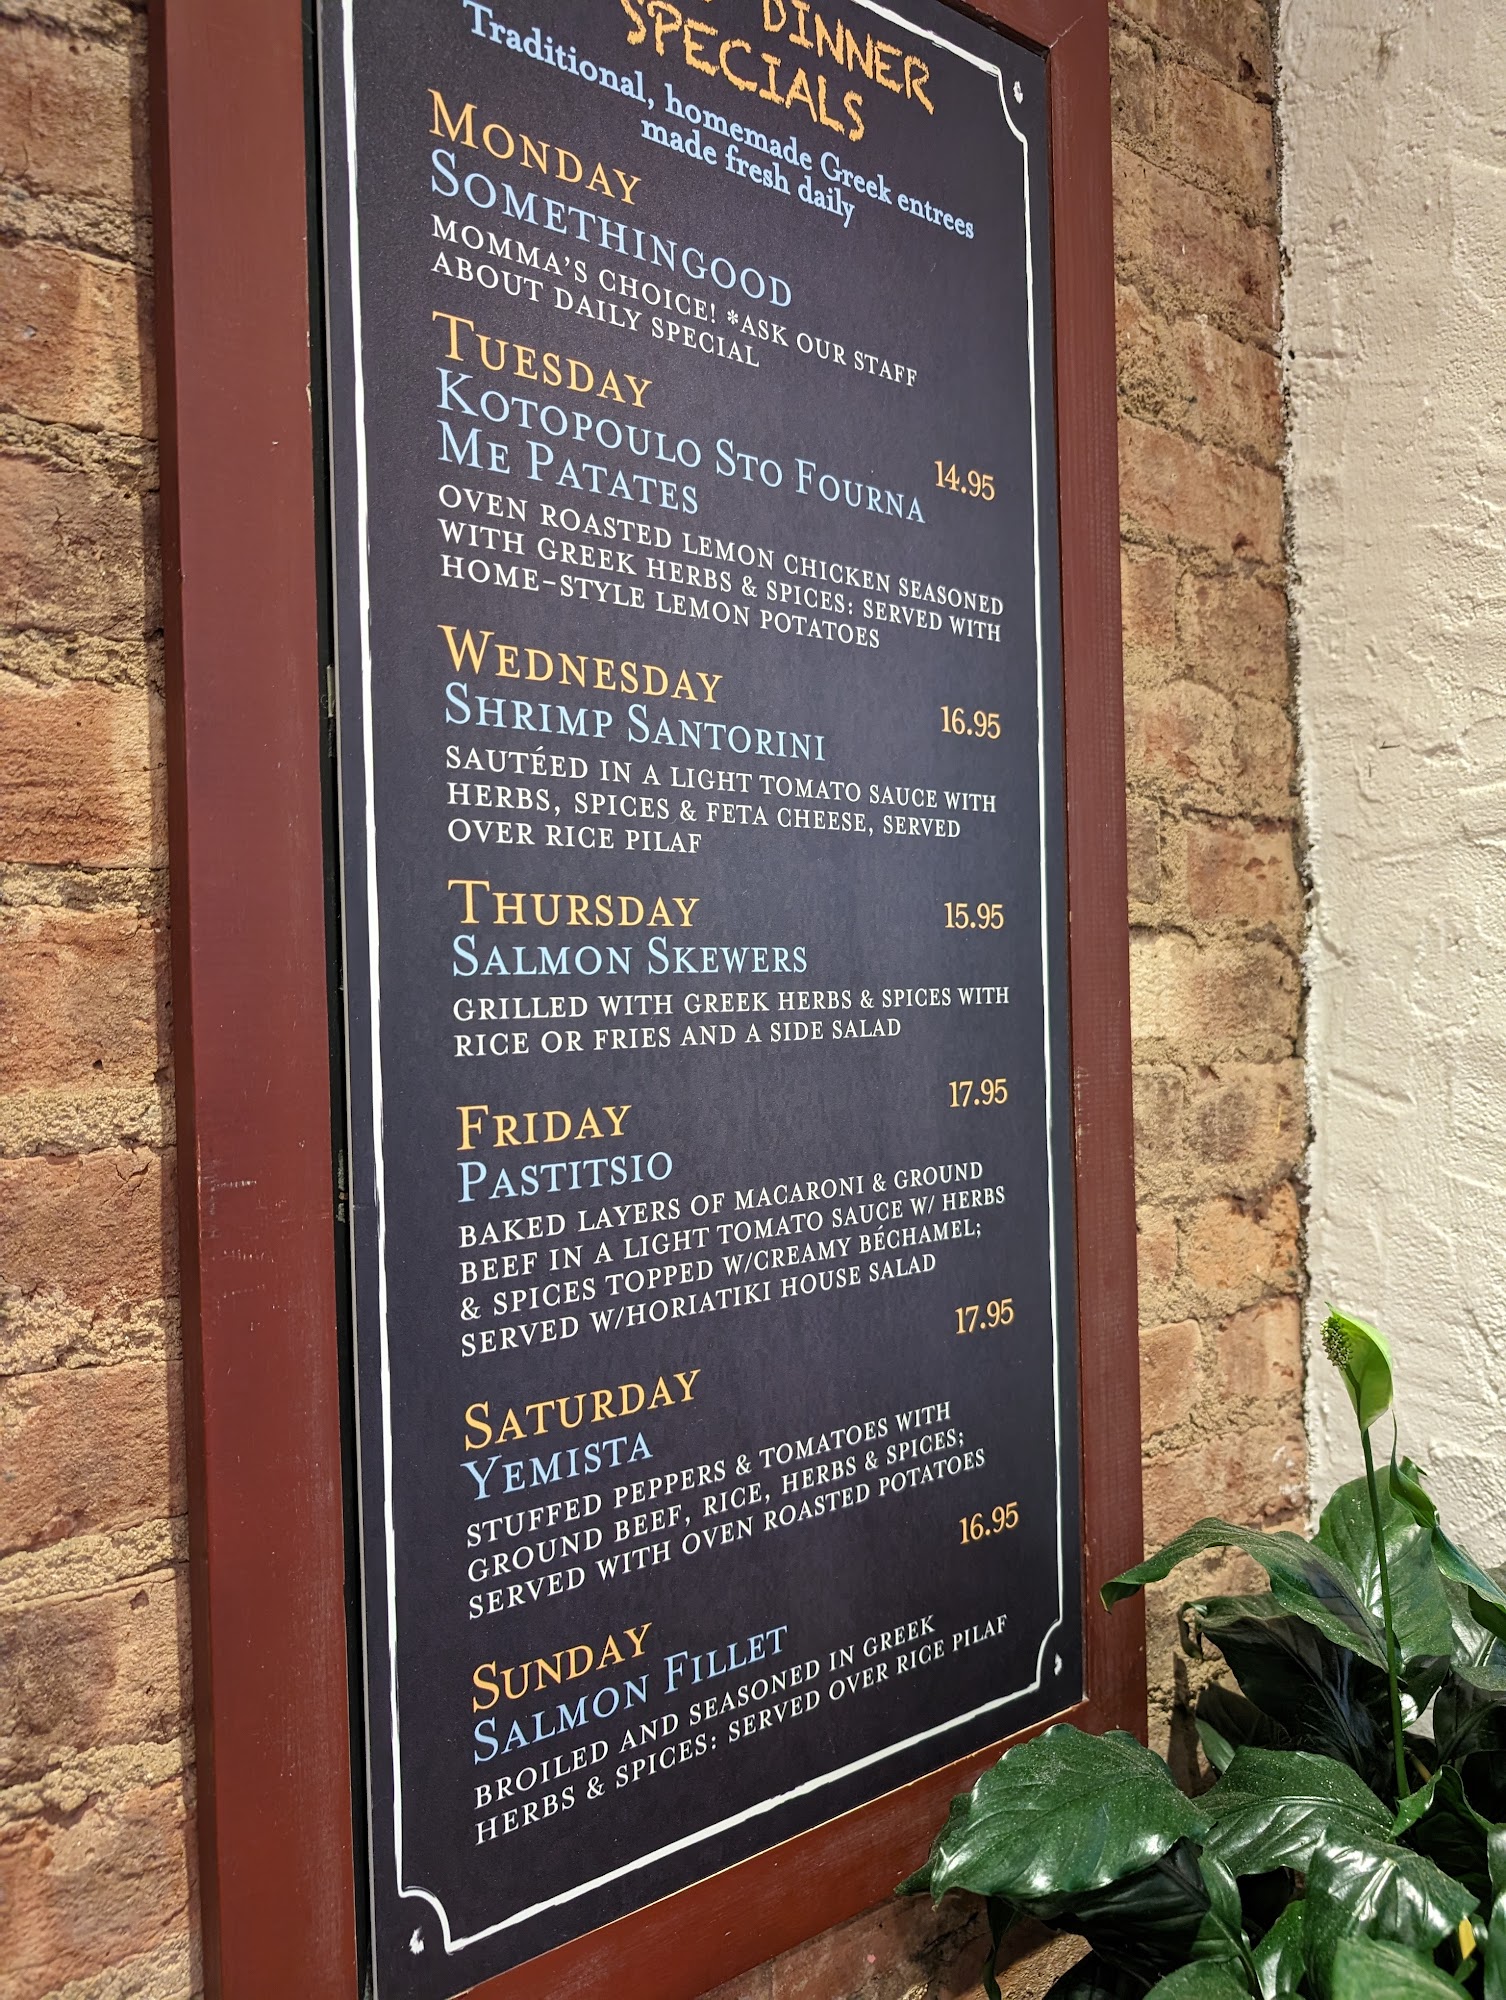 DINNER
SPECIALS
Traditional, homemade Greek entrees
made fresh daily
MONDAY
SOMETHINGOOD
MOMMA'S CHOICE! *ASK OUR STAFF
ABOUT DAILY SPECIAL
TUESDAY
KOTOPOULO STO FOURNA 14.95
ME PATATES
OVEN ROASTED LEMON CHICKEN SEASONED
WITH GREEK HERBS & SPICES: SERVED WITH
HOME-STYLE LEMON POTATOES
WEDNESDAY
SHRIMP SANTORINI 16.95
SAUTÉED IN A LIGHT TOMATO SAUCE WITH
HERBS, SPICES & FETA CHEESE, SERVED
OVER RICE PILAF
THURSDAY 15.95
SALMON SKEWERS
GRILLED WITH GREEK HERBS & SPICES WITH
RICE OR FRIES AND A SIDE SALAD
FRIDAY 17.95
PASTITSIO
BAKED LAYERS OF MACARONI & GROUND
BEEF IN A LIGHT TOMATO SAUCE W/ HERBS
& SPICES TOPPED W/CREAMY BÉCHAMEL;
SERVED W/HORIATIKI HOUSE SALAD
SATURDAY 17.95
YEMISTA
STUFFED PEPPERS & TOMATOES WITH
GROUND BEEF, RICE, HERBS & SPICES;
SERVED WITH OVEN ROASTED POTATOES
SUNDAY 16.95
SALMON FILLET
BROILED AND SEASONED IN GREEK
HERBS & SPICES: SERVED OVER RICE PILAF